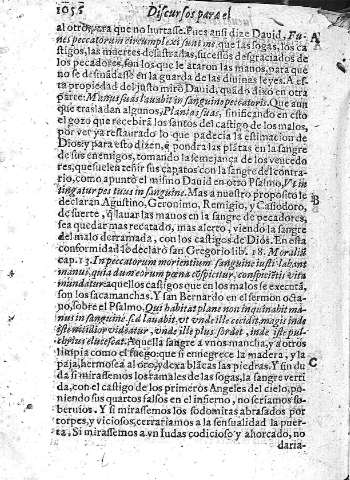 1056 Discursos para el
al otro, para que no hurtasse. Pues assi dize David, Fu- A
nes peccatorum circumplexi sunt me, que las sogas, los ca
stigos, las muertes desastradas, sucessos desgraciados de
los pecadores, son los que le ataron las manos, para que
no se desmãdasse en la guarda de las divinas leyes. A es-
ta propiedad del justo mirò David, quãdo dixo en otra
parte: Manus suas lavabit in sanguine peccatoris. Que aun
que trasladan algunos, Plantas suas, sinificando en esto
el gozo que recebirã los santos del castigo de los malos,
por ver ya restaurado lo que padecia la estimacion de
Dios, y para esto dizen, q̃ pondra las plãtas en la sangre
de sus enemigos, tomando la semejança de los vencedo
res, que suelen teñir sus çapatos con la sangre del contra-
rio, como apuntò el mismo David en otro Psalmo, Vt in
tingatur pes tuus in sanguine. Mas a nuestro proposito le B
declaran Agustino, Geronimo, Remigio, y Casiodoro,
de suerte, q̃ lauar las manos en la sangre de pecadores,
sea quedar mas recatado, mas alerto, viendo la sangre
del malo derramada, con los castigos de Dios. En esta
conformidad lo declarò san Gregorio lib. 18. Moraliũ
cap. 13. In peccatorum morientium sanguine iusti lavant
manus, quia dum eorum pœna cõspicitur, conspicientis vita
mundatur: aquellos castigos que en los malos se executã,
son los sacamanchas. Y san Bernardo en el sermon octa-
vo, sobre el Psalmo, Qui habitat
plane non inquinabit ma-
nus in sanguine, sed lauabit, et vnde ille cecidit, magis inde
iste nitidior videatur, vnde ille plus sordet, inde iste pul-
chrius elucescat. Aquella sangre a vnos mancha, y a otros
limpia como el fuego, que si ennegrece la madera, y la
paja, hermosea al oro, y dexa blãcas las piedras. Y sin du C
da si mirassemos los ramales de las sogas, la sangre verti
da, con el castigo de los primeros Angeles del cielo, po
niendo sus quartos falsos en el infierno, no seriamos so-
beruios. Y si mirassemos los sodomitas abrasados por
torpes, y viciosos, cerrariamos a la sensualidad la puer-
ta. Si mirassemos a vn Iudas codicioso y ahorcado, no
daria-